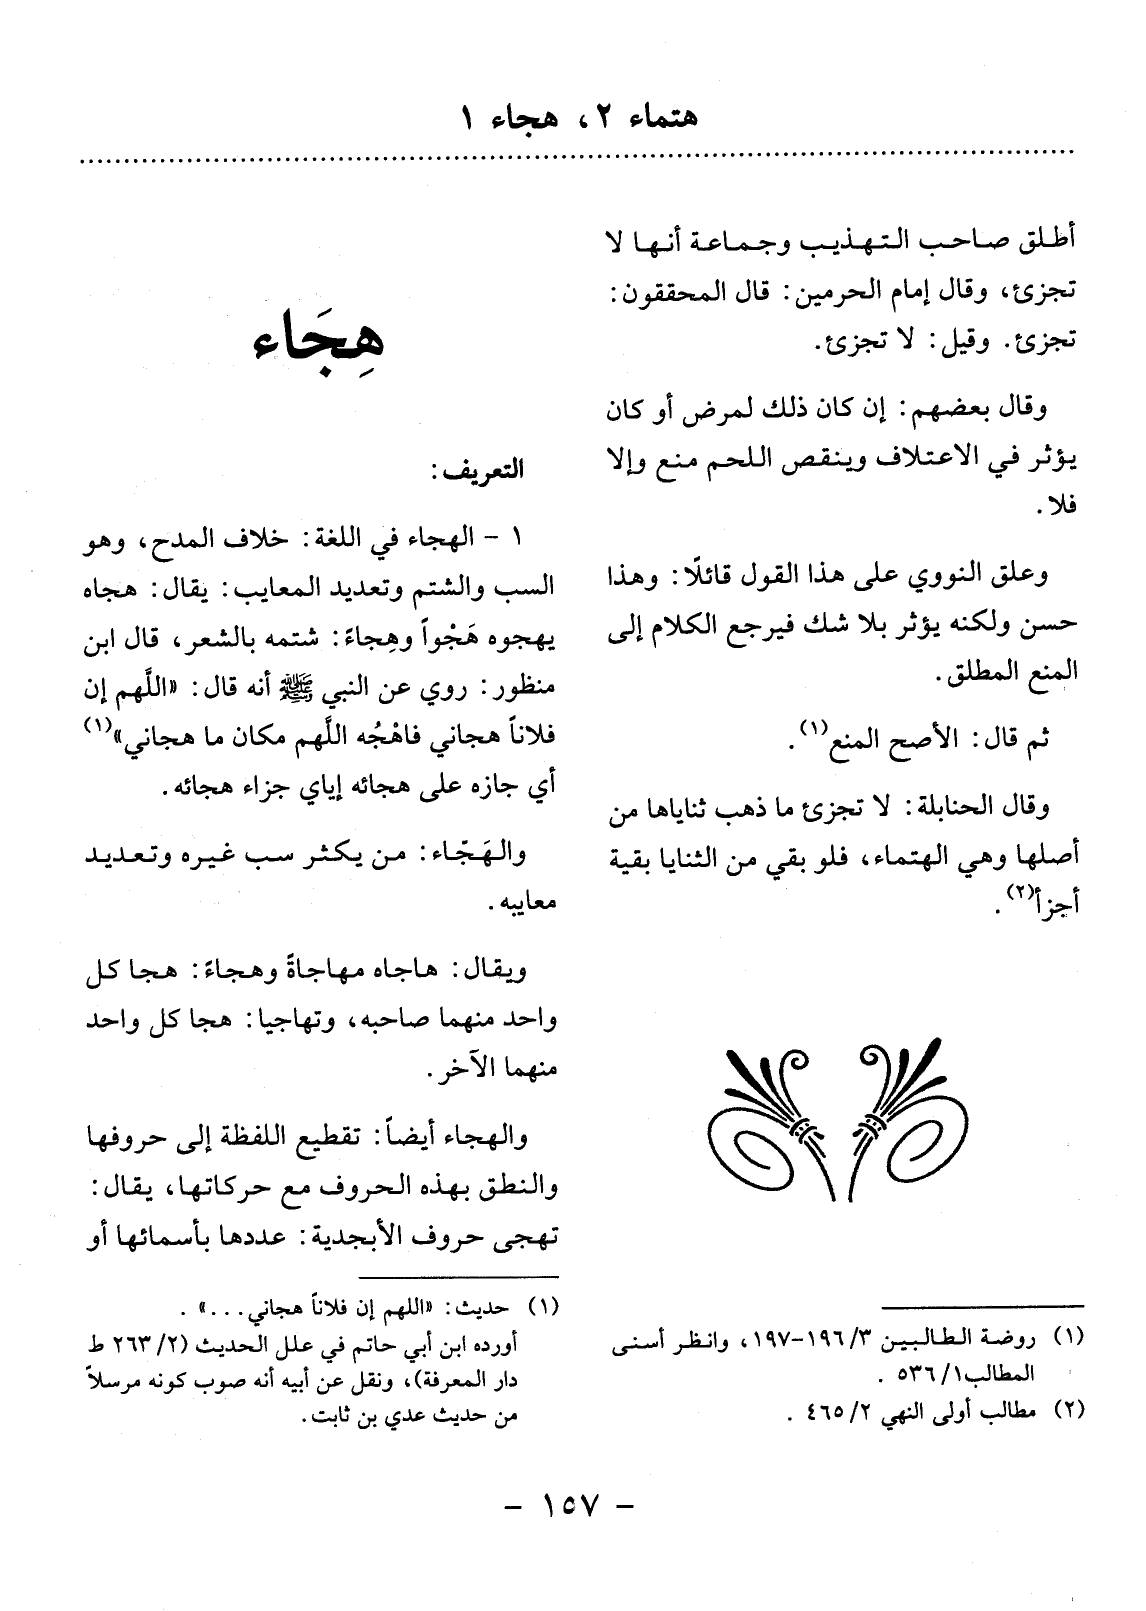 هتماء ٢، هجاء ١
أطلق صاحب التهذيب وجماعة أنها لا
تجزئ، وقال إمام الحرمين: قال المحققون:
تجزئ. وقيل: لا تجزئ.
وقال بعضهم: إن كان ذلك لمرض أو كان
يؤثر في الاعتلاف وينقص اللحم منع وإلا
فلا.
وعلق النووي على هذا القول قائلًا: وهذا
حسن ولكنه يؤثر بلا شك فيرجع الكلام إلى
المنع المطلق.
ثم قال: الأصح المنع(١).
وقال الحنابلة: لا تجزئ ما ذهب ثناياها من
أصلها وهي الهتماء، فلو بقي من الثنايا بقية
أجزأ(٢).
(١) روضة الطالبين ٣/ ١٩٦-١٩٧، وانظر أسنى
المطالب ١/ ٥٣٦ .
(٢) مطالب أولى النهي ٢/ ٤٦٥ .
هِجَاء
التعريف:
١ - الهجاء في اللغة: خلاف المدح، وهو
السب والشتم وتعديد المعايب: يقال: هجاه
يهجوه هَجْواً وهِجاءً: شتمه بالشعر، قال ابن
منظور: روي عن النبي ﷺ أنه قال: «اللَّهم إن
فلاناً هجاني فاهْجُه اللَّهم مكان ما هجاني»(١)
أي جازه على هجائه إياي جزاء هجائه.
والهَجّاء: من يكثر سب غيره وتعديد
معايبه.
ويقال: هاجاه مهاجاةً وهجاءً: هجا كل
واحد منهما صاحبه، وتهاجيا: هجا كل واحد
منهما الآخر.
والهجاء أيضاً: تقطيع اللفظة إلى حروفها
والنطق بهذه الحروف مع حركاتها، يقال:
تهجى حروف الأبجدية: عددها بأسمائها أو
(١) حديث: «اللهم إن فلاناً هجاني...» .
أورده ابن أبي حاتم في علل الحديث (٢/ ٢٦٣ ط
دار المعرفة)، ونقل عن أبيه أنه صوب كونه مرسلاً
من حديث عدي بن ثابت.
- ١٥٧ -